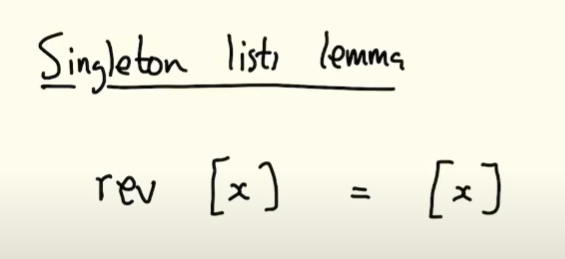 Singleton lists lemma
rev [x] = [x]